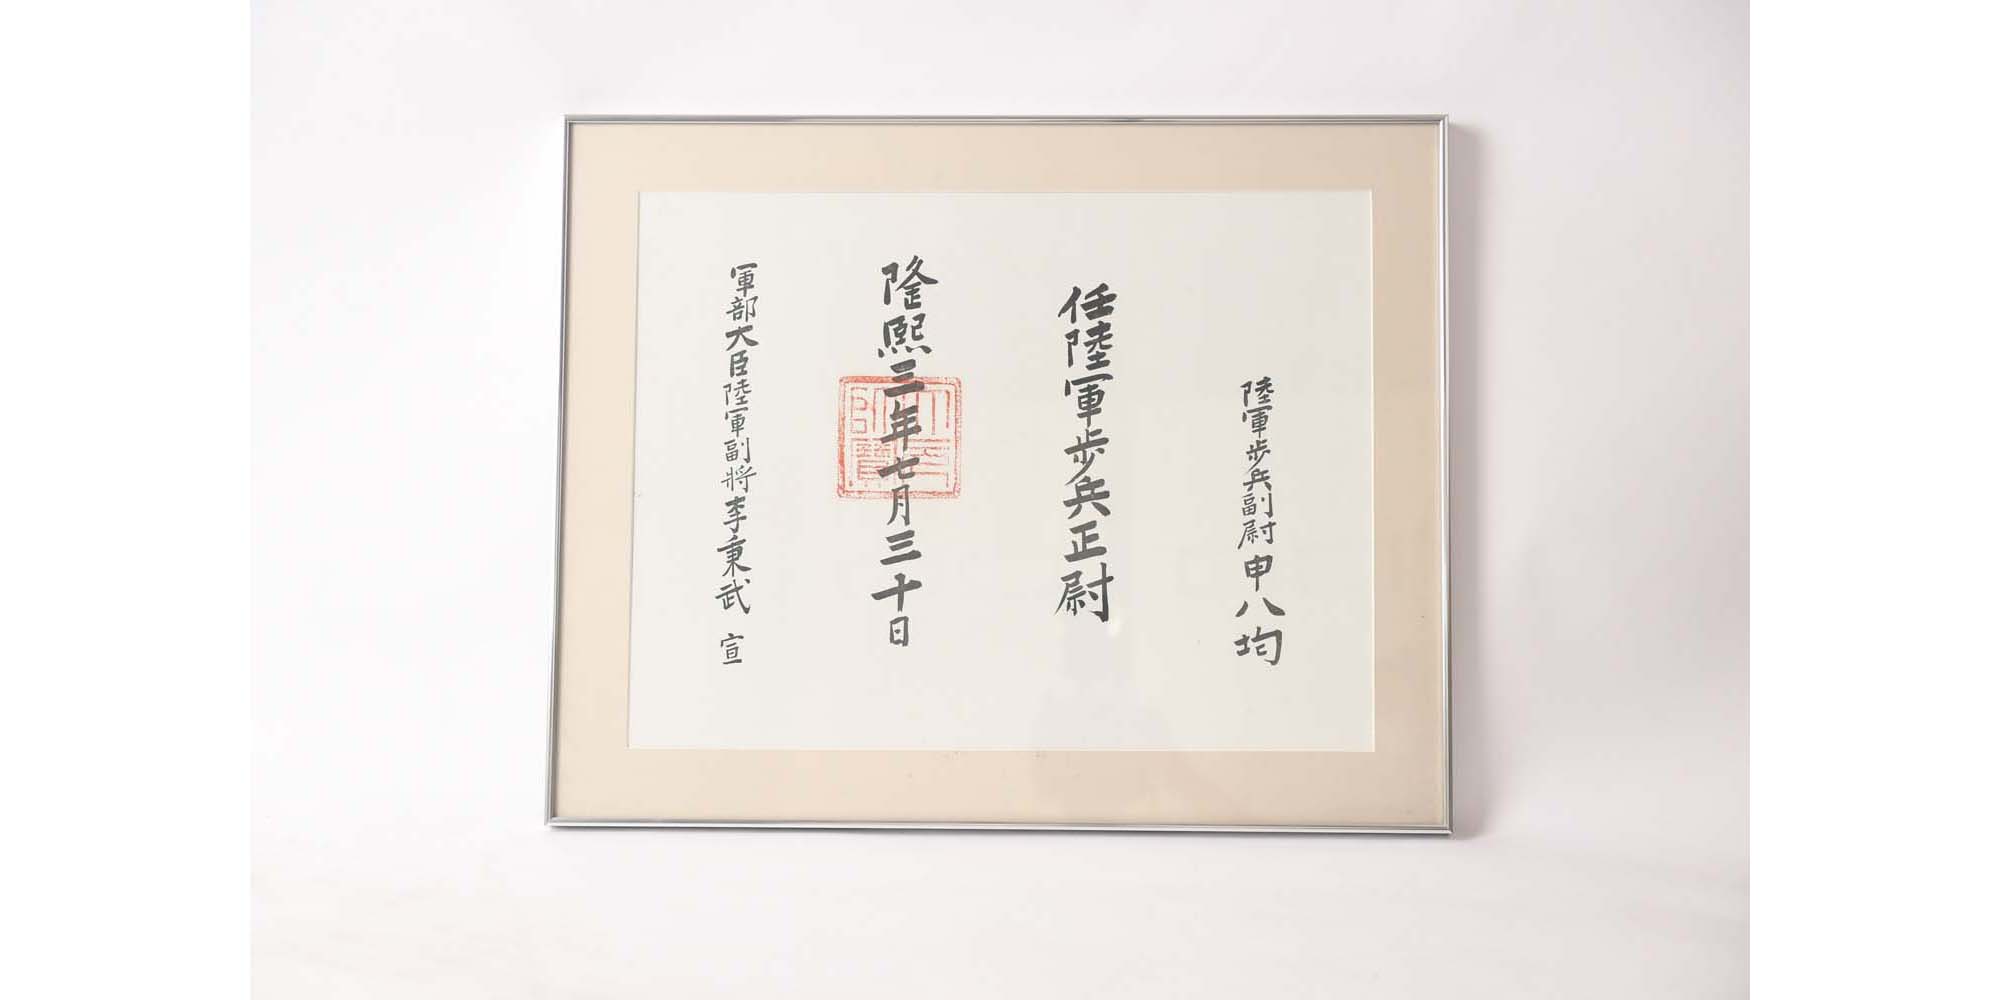 陸軍歩兵副尉申八均
任陸軍歩兵正尉
隆熙三年七月三十日
軍部大臣陸軍副將李秉武 宣